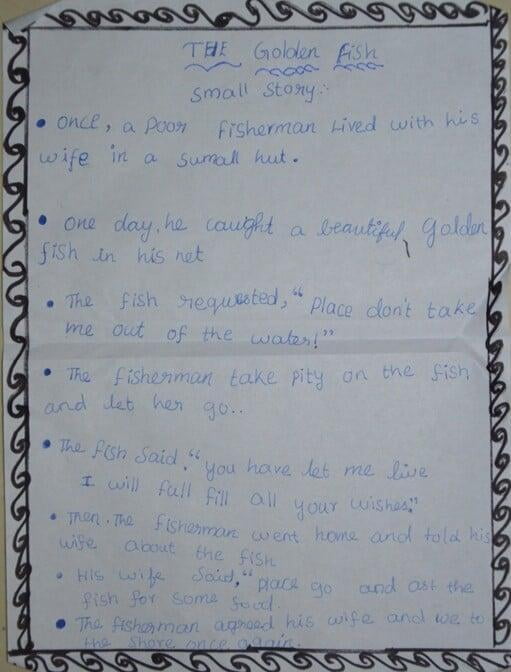 THE Golden Fish
Small Story:
• Once, a Poor fisherman Lived with his
wife in a sumall hut.
• One day, he caught a beautiful, Golden
fish in his net
• The fish requested, "Place don't take
me out of the water!"
• The fisherman take pity on the fish
and let her go..
• The fish Said, "you have let me live
I will full fill all your wishes."
• Then. The fisherman went home and told his
wife about the fish
• His wife Said, "place go and ast the
fish for some food.
• The fisherman agreed his wife and we to
the shore once again.